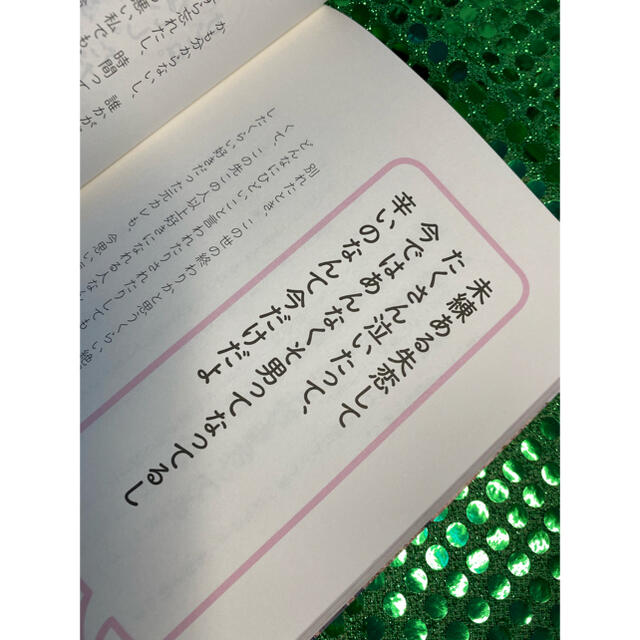 未練ある失恋して
たくさん泣いたって、
今ではあんなくそ男ってなってるし
辛いのなんて今だけだよ
別れたとき、この世の終わりかと思うくらい絶
どんなにひどいこと言われたりされたりしても
くて、この先この人以上好きになれる人な
したくらい好きだった元カレも、今思い
誰かが、
かも分からないし、
時間って
すら忘れたし、